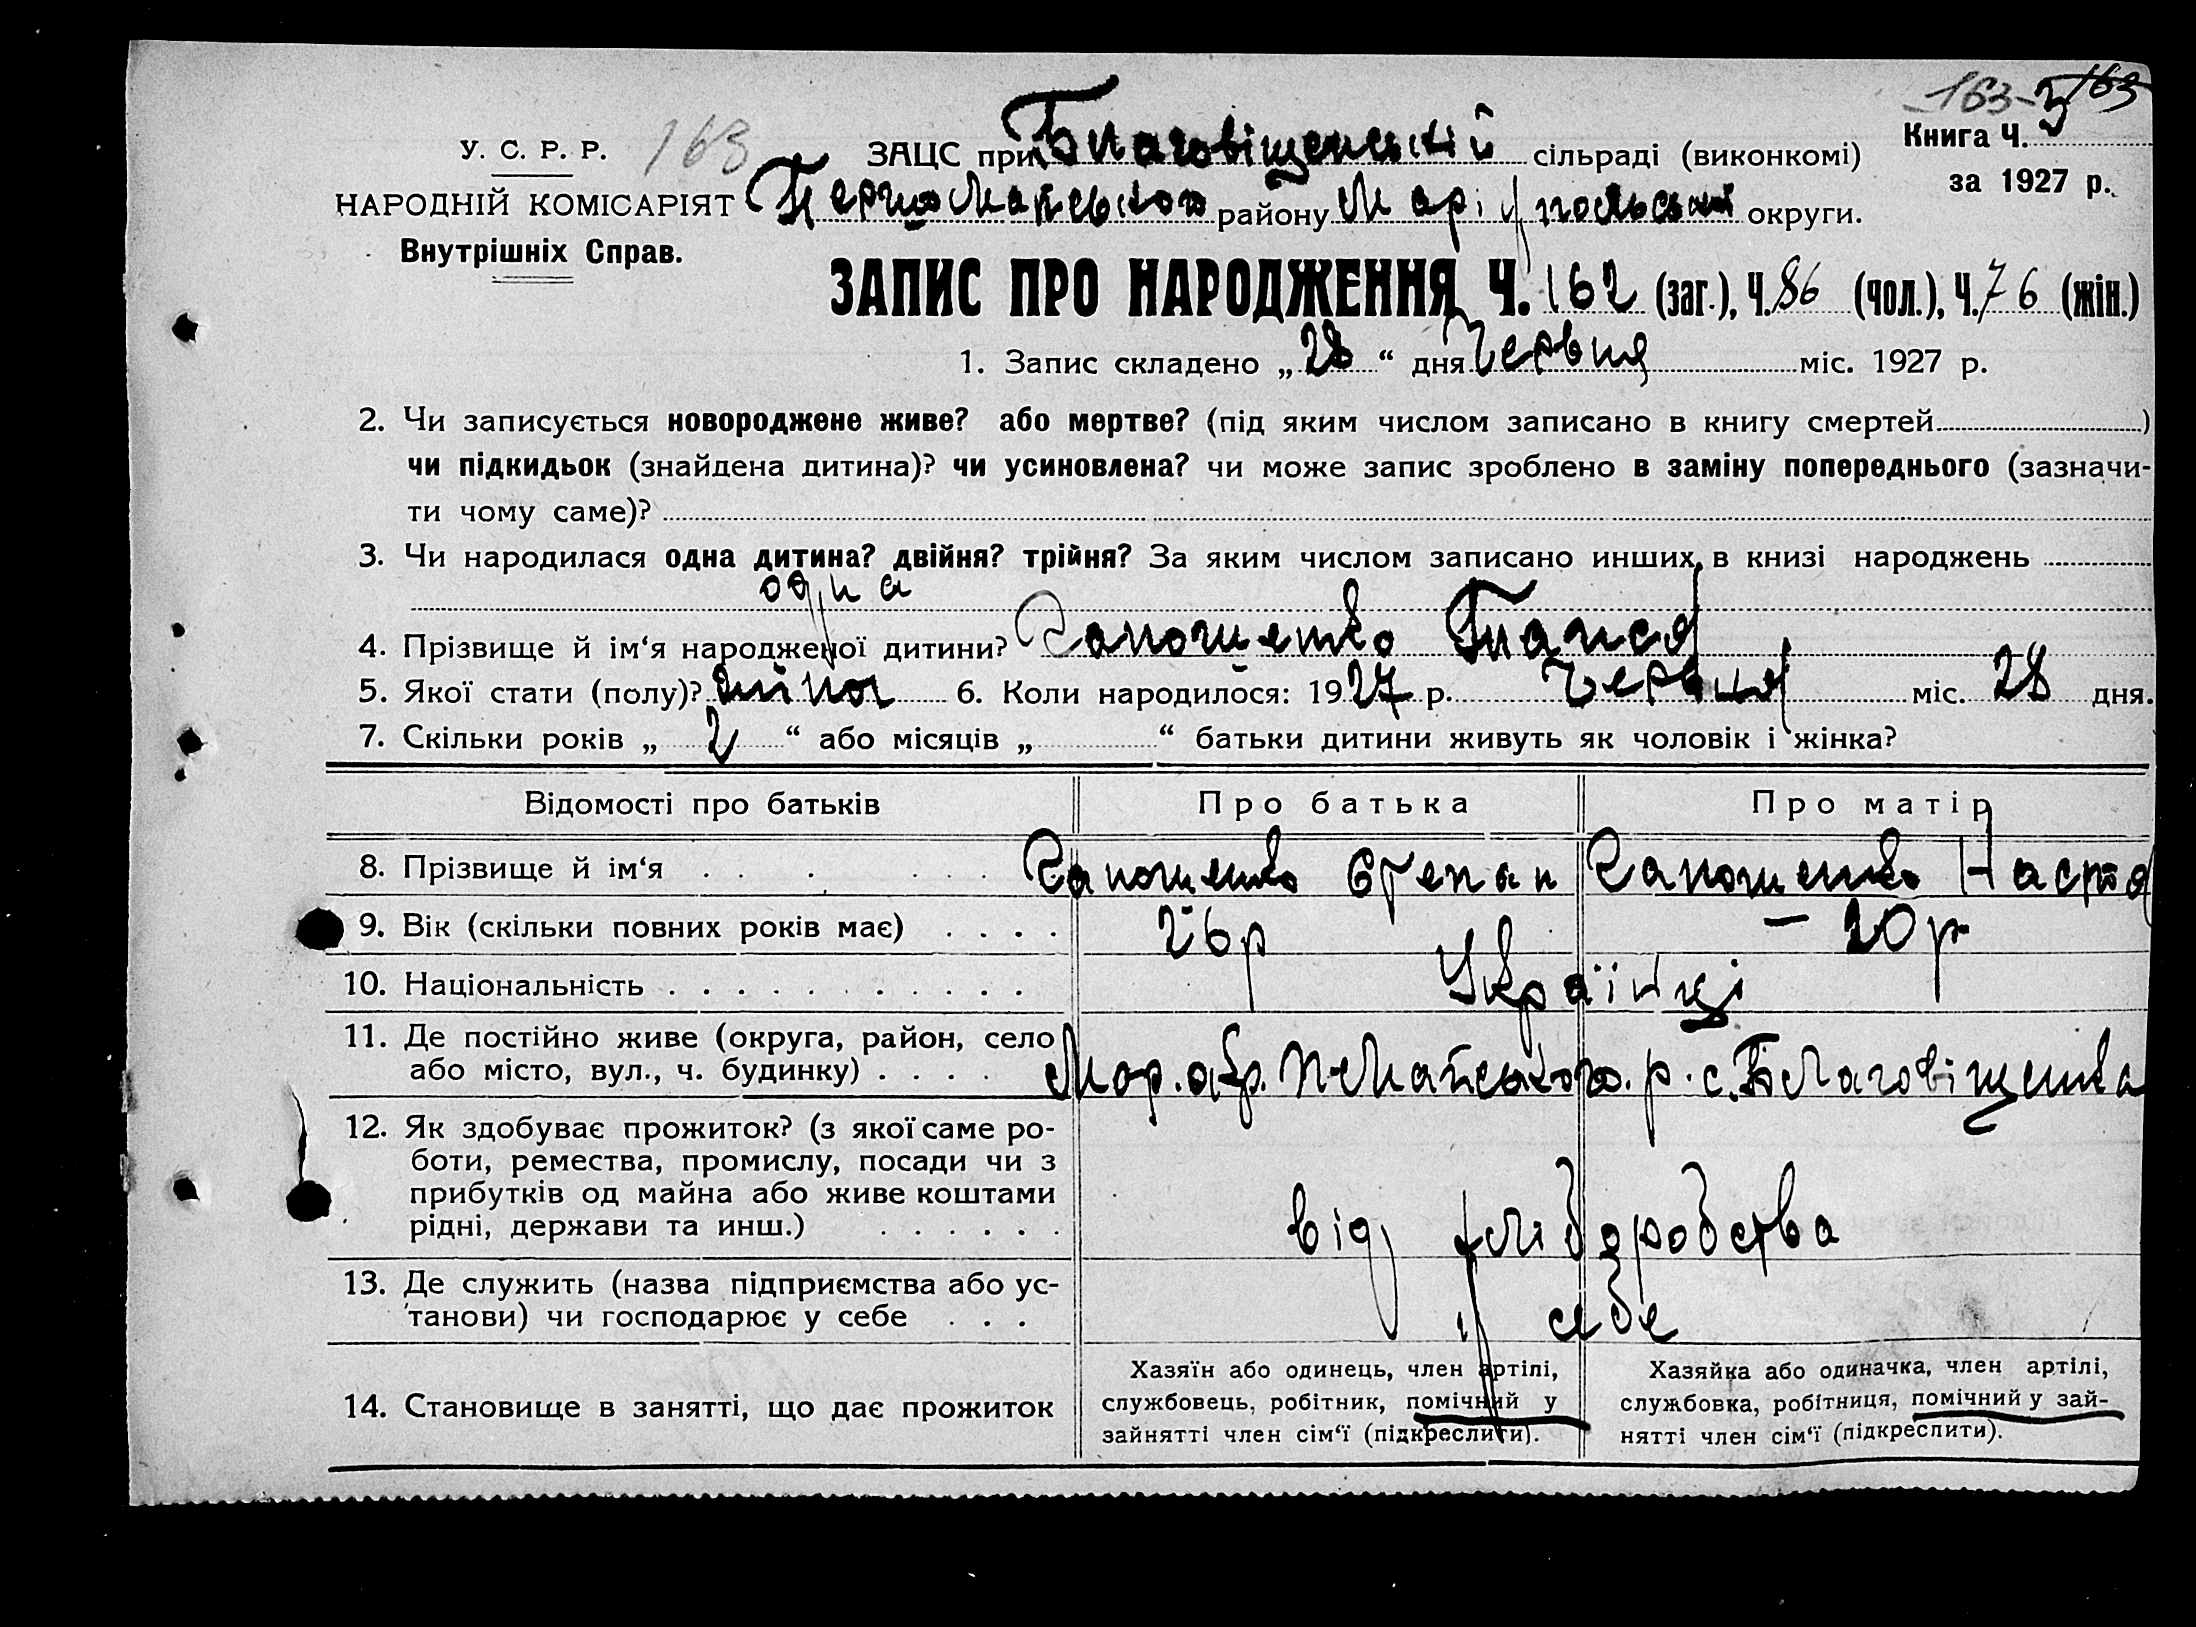 163- 163
У. С. Р. Р. 163 ЗАЦС при Благовіщенській сільраді (виконкомі) Книга Ч. 3
НАРОДНІЙ КОМІСАРІЯТ Першомайського району Маріупольської округи. за 1927 р.
Внутрішніх Справ.
ЗАПИС ПРО НАРОДЖЕННЯ Ч. 162 (заг.), Ч. 86 (чол.), Ч. 76 (жін.)
1. Запис складено „ 28 “ дня Червня міс. 1927 р.
2. Чи записується новороджене живе? або мертве? (під яким числом записано в книгу смертей )
чи підкидьок (знайдена дитина)? чи усиновлена? чи може запис зроблено в заміну попереднього (зазначи-
ти чому саме)?
3. Чи народилася одна дитина? двійня? трійня? За яким числом записано инших в книзі народжень
одна
4. Прізвище й ім‘я народженої дитини? Сапошенко Таися
5. Якої стати (полу)? жіноч 6. Коли народилося: 1927 р. Червня міс. 28 дня.
7. Скільки років „ 2 “ або місяців „ “ батьки дитини живуть як чоловік і жінка?
Відомості про батьків Про батька Про матір
8. Прізвище й ім‘я . . . . . . . Сапошенко Степан Сапошенко Настя
9. Вік (скільки повних років має) . . . . 26 р – 20 р
10. Національність . . . . . . . . . . . Українці
11. Де постійно живе (округа, район, село
або місто, вул., ч. будинку) . . . . Мар. окр. П-Майського. р. с. Благовіщенка
12. Як здобуває прожиток? (з якої саме ро-
боти, ремества, промислу, посади чи з
прибутків од майна або живе коштами
рідні, держави та инш.) . . . . . . від хліборобства
13. Де служить (назва підприємства або ус-
танови) чи господарює у себе . . . у себе
14. Становище в занятті, що дає прожиток
Хазяїн або одинець, член артілі,
службовець, робітник, помічний у
зайнятті член сім‘ї (підкреслити).
Хазяйка або одиначка, член артілі,
службовка, робітниця, помічний у зай-
нятті член сім‘ї (підкреслити).